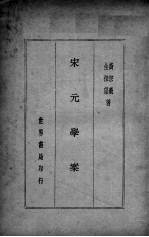 黃宗羲
全祖望 著
宋元學案
世界書局印行